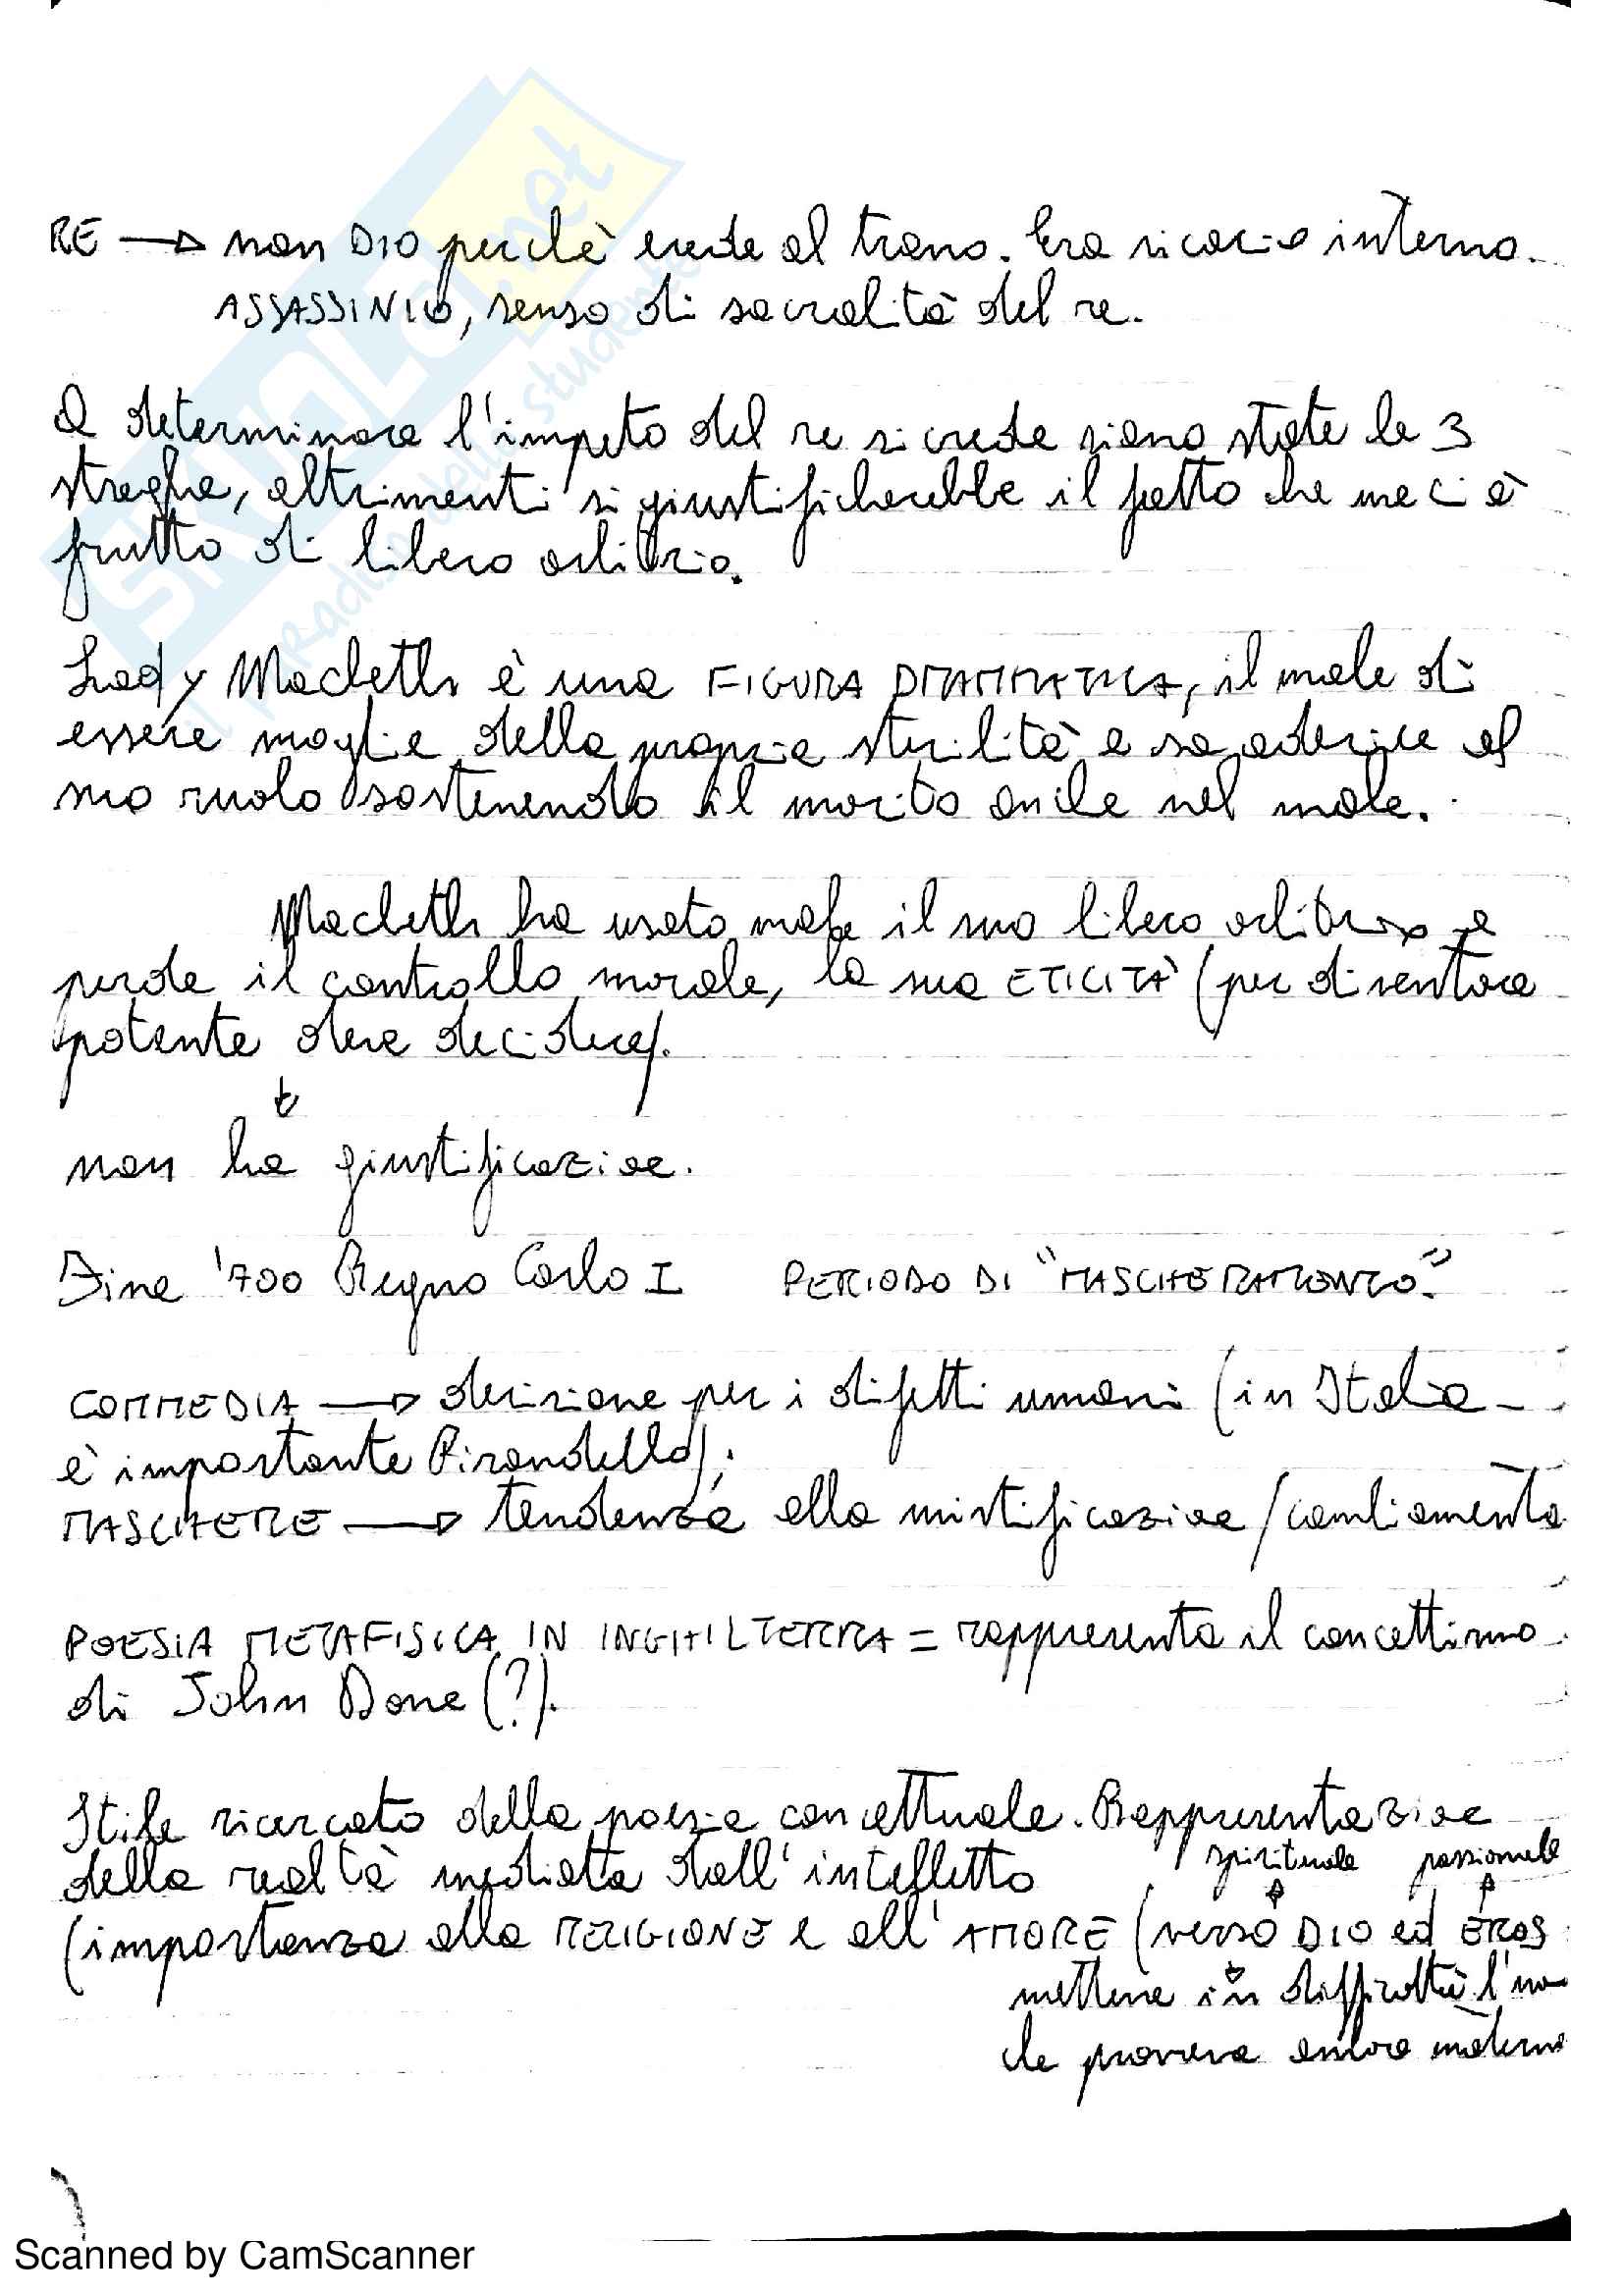 RE → non DIO perchè erede al trono. Era sicario interno.
ASSASSINIO, senso di sacralità del re.
A determinare l'impeto del re si crede siano state le 3
streghe, altrimenti si giustificherebbe il fatto che ma ci è
frutto di libero arbitrio.
Lady Macbeth è una FIGURA DRAMMATICA, il male di
essere moglie della propria sterilità e sa aderire al
suo ruolo sostenendo il marito anche nel male.
Macbeth ha usato male il suo libero arbitrio e
perde il controllo morale, la sua ETICITÀ (per diventare
potente deve decidere).
non ha giustificazione.
Fine '700 Regno Carlo I PERIODO DI "MASCHERAMENTO".
COMMEDIA → derisione per i difetti umani (in Italia
è importante Pirandello);
MASCHERE → tendenza alla mistificazione/cambiamento
POESIA METAFISICA IN INGHILTERRA = rappresenta il concettismo
di John Done (?).
Stile ricercato della poesia concettuale. Rappresentazione
della realtà mediata dall'intelletto
spirituale passionale
(importanza alla RELIGIONE e all'AMORE (verso DIO ed EROS
mettere in difficoltà l'uo
che proveva amore materno
SKUOLA.net
il paradiso dello studente
Scanned by CamScanner